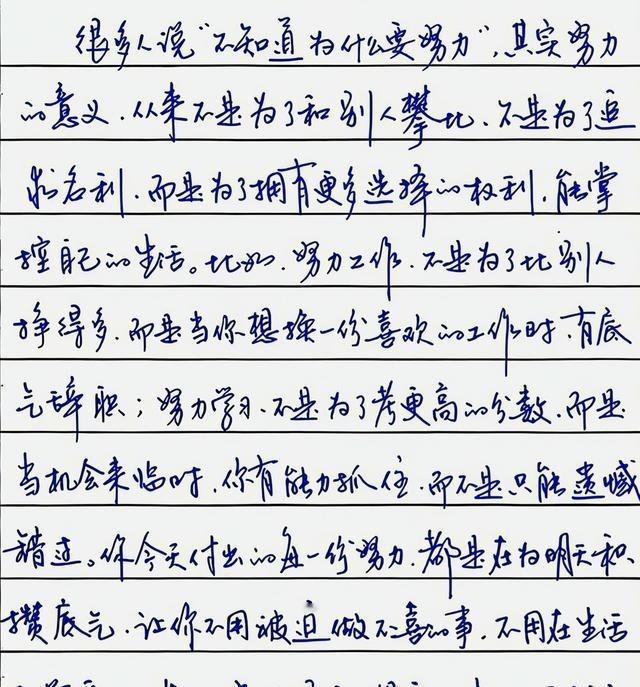 很多人说“不知道为什么要努力”,其实努力
的意义,从来不是为了和别人攀比、不是为了追
求名利,而是为了拥有更多选择的权利,能掌
控自己的生活。比如,努力工作,不是为了比别人
挣得多,而是当你想换一份喜欢的工作时,有底
气辞职;努力学习、不是为了考更高的分数,而是
当机会来临时,你有能力抓住,而不是只能遗憾
错过。你今天付出的每一份努力,都是在为明天积
攒底气,让你不用被迫做不喜的事,不用在生活